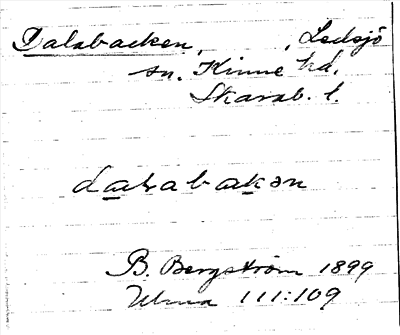 Dalabacken, , Ledsjö
sn. Kinne hd.
Skarab. l.
dalabakən
B. Bergström 1899
Ulma 111:109